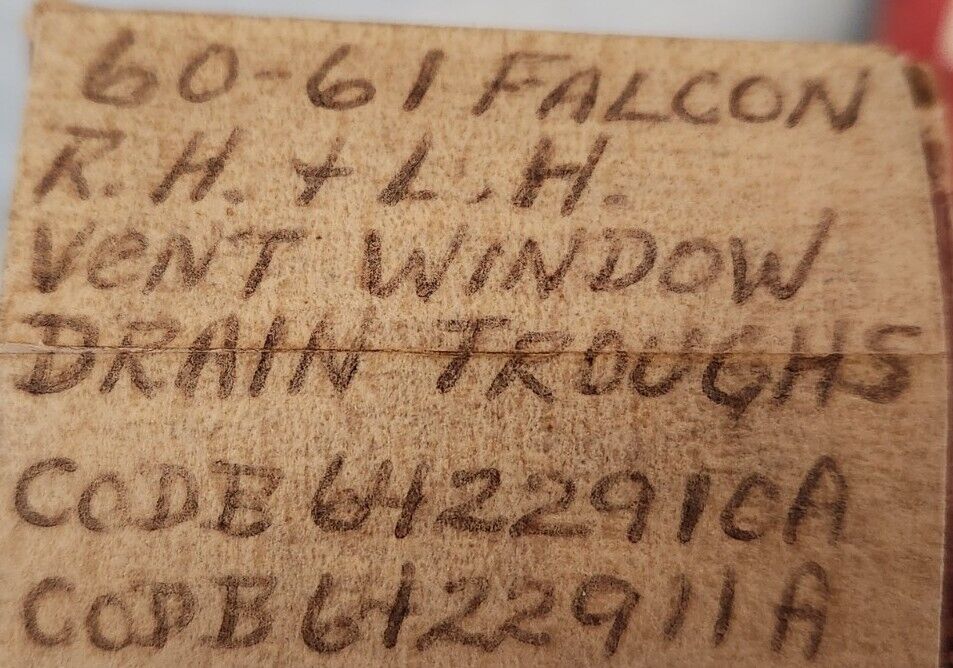 60-61 FALCON
R.H. + L.H.
VENT WINDOW
DRAIN TROUGHS
CODE 6422910A
CODE 6422911A